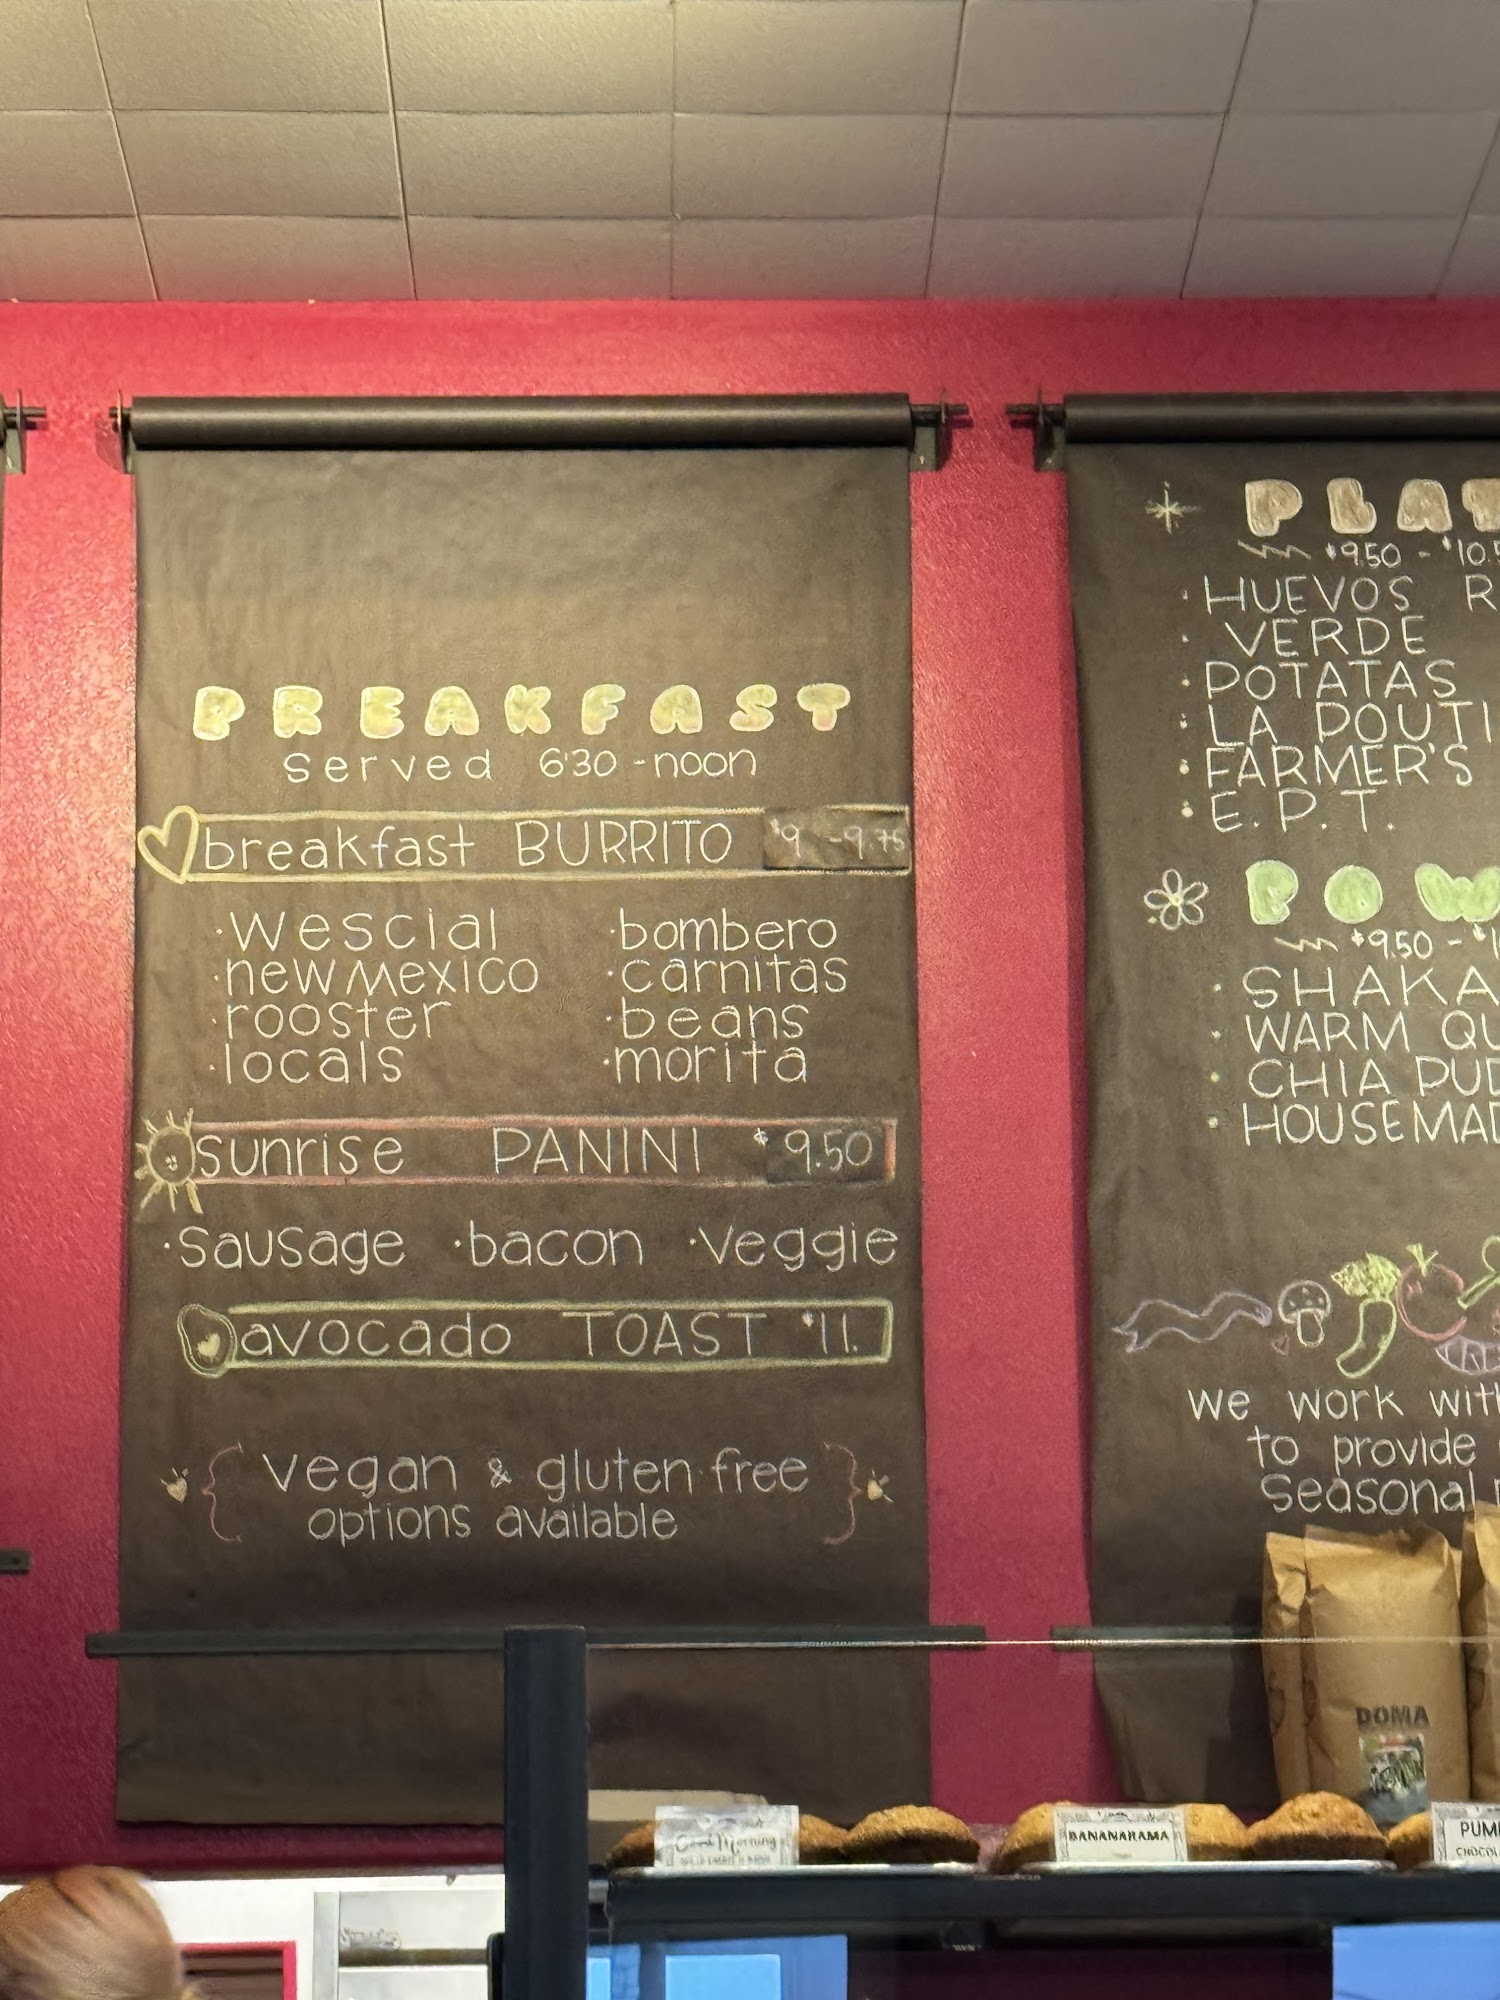 BREAKFAST
served 6:30 - noon
breakfast BURRITO $9 - 9.75
· wescial
· new mexico
· rooster
· locals
· bombero
· carnitas
· beans
· morita
sunrise PANINI $9.50
· sausage · bacon · veggie
avocado TOAST $11.
{ vegan & gluten free
options available }
PLAT
$9.50 - $10.5
· HUEVOS R
· VERDE
· POTATAS
· LA POUTI
· FARMER'S
· E.P.T.
BOW
$9.50 - $1
· SHAKA
· WARM QU
· CHIA PUD
· HOUSEMAD
we work with
to provide
seasonal
DOMA
Good Morning
BANANARAMA
PUM
CHOCOL